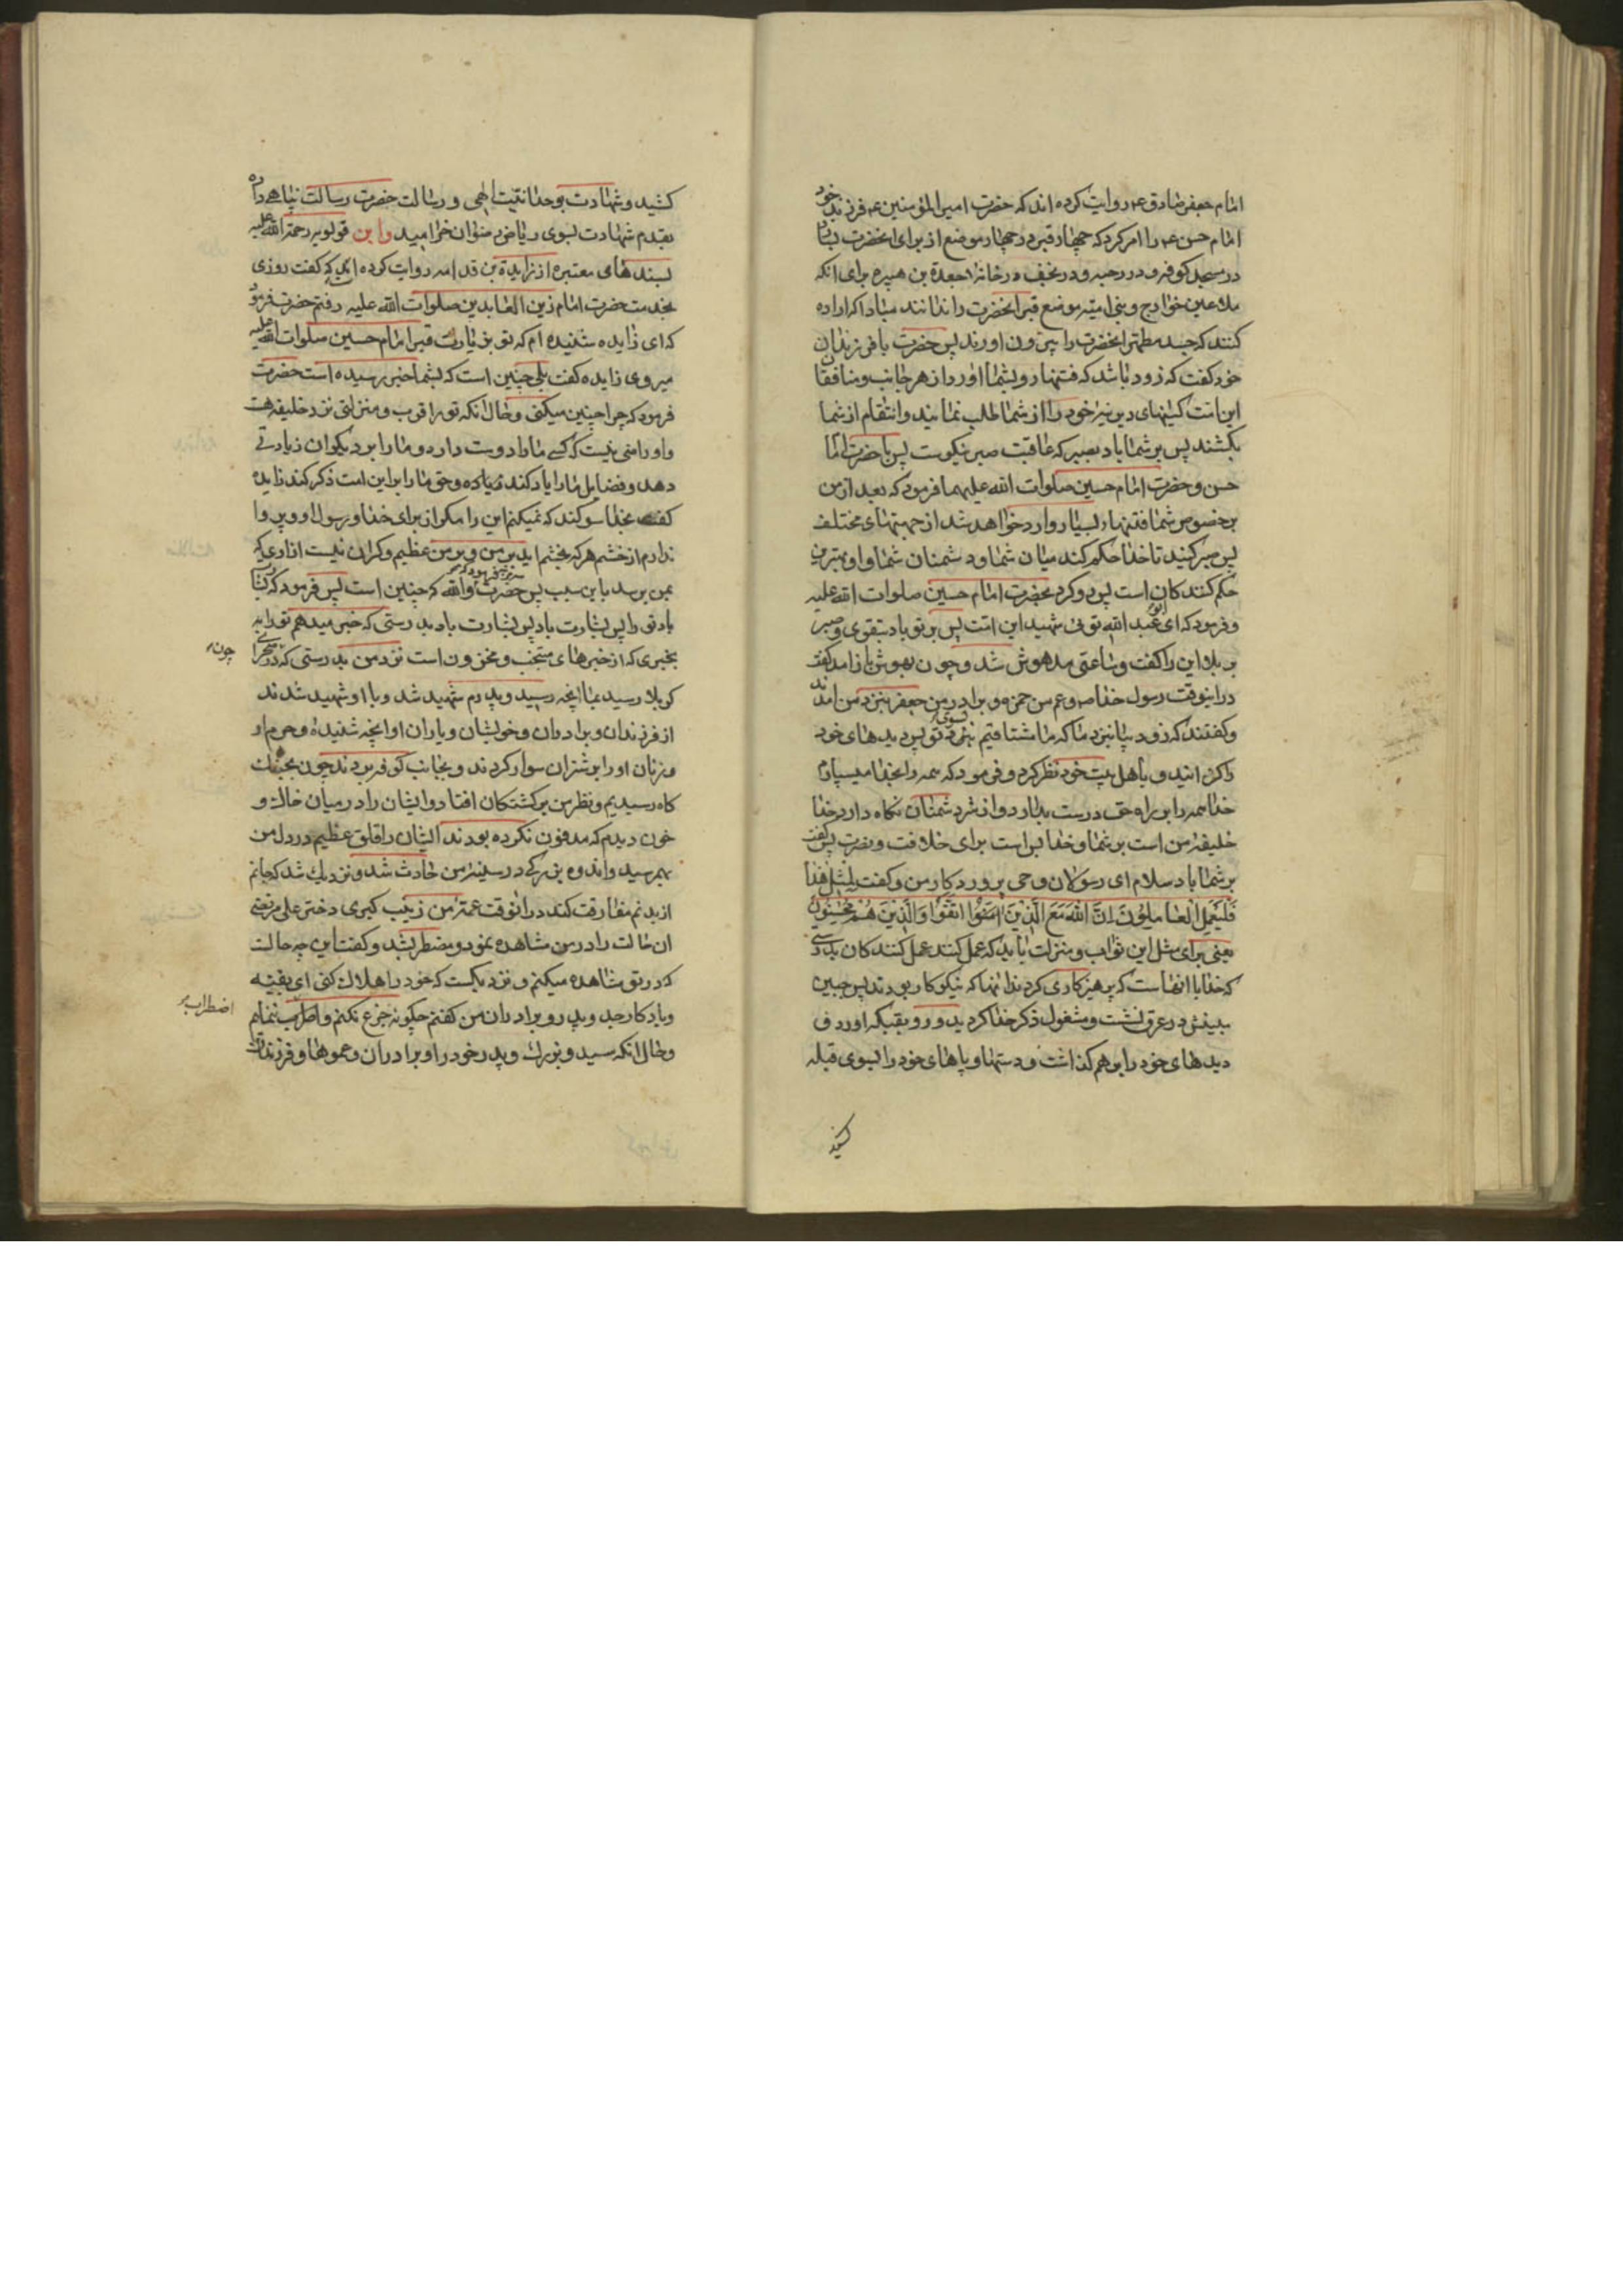 امام جعفر صادق ع روایت کرده اند که حضرت امیر المؤمنین ع فرزند خود
امام حسن ع را امر کرد که چهار قبر در چهار موضع از برای انحضرت بسازد
در مسجد کوفه و در رحبه و در نجف و در خانه جعدة بن هبیره برای انکه
ملاعین خوارج و بنی امیه موضع قبر انحضرت را ندانند مبادا که اراده
کنند که جسد مطهر انحضرت را بیرون اورند پس حضرت با فرزندان
خود کفت که زود باشد که فتنها رو بشما اورد از هر جانب و منافقان
این امت کینهای دیرینه خود را از شما طلب نمایند و انتقام از شما
بکشند پس بر شما باد بصبر که عاقبت صبر نیکوست پس با حضرت امام
حسن و حضرت امام حسین صلوات الله علیهما فرمود که بعد از من
بر خصوص شما فتنهاء بسیار وارد خواهد شد از جهتهای مختلف
پس صبر کنید تا خدا حکم کند میان شما و دشمنان شما و او بهترین
حکم کنندکان است پس رو کرد بحضرت امام حسین صلوات الله علیه
و فرمود که ای ابو عبد الله توئی شهید این امت پس بر تو باد بتقوی و صبر
بر بلا این را کفت و ساعتی مدهوش شد و چون بهوش باز امد کفت
در اینوقت رسول خدا ص و عم من حمزه و برادر من جعفر بنزد من امدند
و کفتند که زود بیا بنزد ما که ما مشتاقیم بسوی تو پس دیدهای خود
را کردانید و باهل بیت خود نظر کرد و فرمود که همه را بخدا میسپارم
خدا همه را بر راه حق درست بدارد و از شر دشمنان نکاه دارد خدا
خلیفه من است بر شما و خدا بس است برای خلافت و نصرت پس کفت
بر شما باد سلام ای رسولان وحی پروردکار من و کفت لِمِثلِ هٰذا
فَلْیَعْمَلِ الْعٰامِلُونَ اِنَّ اللّهَ مَعَ الَّذینَ اتَّقَوْا وَالَّذینَ هُمْ مُحْسِنُونَ
یعنی برای مثل این ثواب و منزلت باید که عمل کنند عمل کنندکان بدرستی
که خدا با انهاست که پرهیزکاری کردند و انها که نیکوکار بودند پس جبین
مبینش در عرق نشست و مشغول ذکر خدا کردید و رو بقبله اورد و
دیدهای خود را بر هم کذاشت و دستها و پاهای خود را بسوی قبله
کشید
کشید و شهادت بوحدانیت الهی و رسالت حضرت رسالت پناهی داده
بقدم شهادت بسوی ریاض رضوان خرامید و ابن قولویه رحمة الله علیه
بسندهای معتبره از زایدة بن قدامه روایت کرده است که کفت روزی
بخدمت حضرت امام زین العابدین صلوات الله علیه رفتم حضرت فرمود
که ای زایده شنیده ام که تو بزیارت قبر امام حسین صلوات الله علیه
میروی زایده کفت بلی چنین است که بشما خبر رسیده است حضرت
فرمود که چرا چنین میکنی و حال انکه تو را قرب و منزلتی نزد خلیفه هست
و او راضی نیست که کسی ما را دوست دارد و ما را بر دیکران زیادتی
دهد و فضایل ما را یاد کند و حق ما را بر این امت ذکر کند زایده
کفت بخدا سوکند که نمیکنم این را مکر از برای خدا و رسول او و پروا
ندارم از خشم هر که بخشم اید بر من و بر من عظیم و کران نیست ازاری که
بمن برسد باین سبب پس حضرت فرمود که والله که چنین است پس فرمود که بشارت
باد تو را پس بشارت باد پس بشارت باد بدرستی که خبر میدهم تو را به
بخبری که از خبرهای منتخب و مخزون است نزد من بدرستی که در صحرای
چون
کربلا رسید بما انچه رسید و پدرم شهید شد و با او شهید شدند
از فرزندان و برادران و خویشان و یاران او انچه شنیدهٔ و حرم او
و زنان او را بر شتران سوار کردند و بجانب کوفه بردند چون بجنک
کاه رسیدیم و نظر من بر کشتکان افتاد و ایشان را در میان خاک و
خون دیدم که مدفون نکرده بودند ایشان را قلق عظیم در دل من
بهم رسید و اندوه بزرکی در سینه من حادث شد و نزدیک شد که جانم
از بدنم مفارقت کند در انوقت عمه من زینب کبری دختر علی مرتضی
ان حالت را در من مشاهده نمود و مضطرب شد و کفت این چه حالت
که در تو مشاهده میکنم و نزدیکست که خود را هلاک کنی ای بقیه
و یادکار جد و پدر و برادران من کفتم چکونه جزع نکنم و اضطراب ننمایم
اضطراب
و حال انکه سید و بزرک و پدر خود را و برادران و عموها و فرزندان